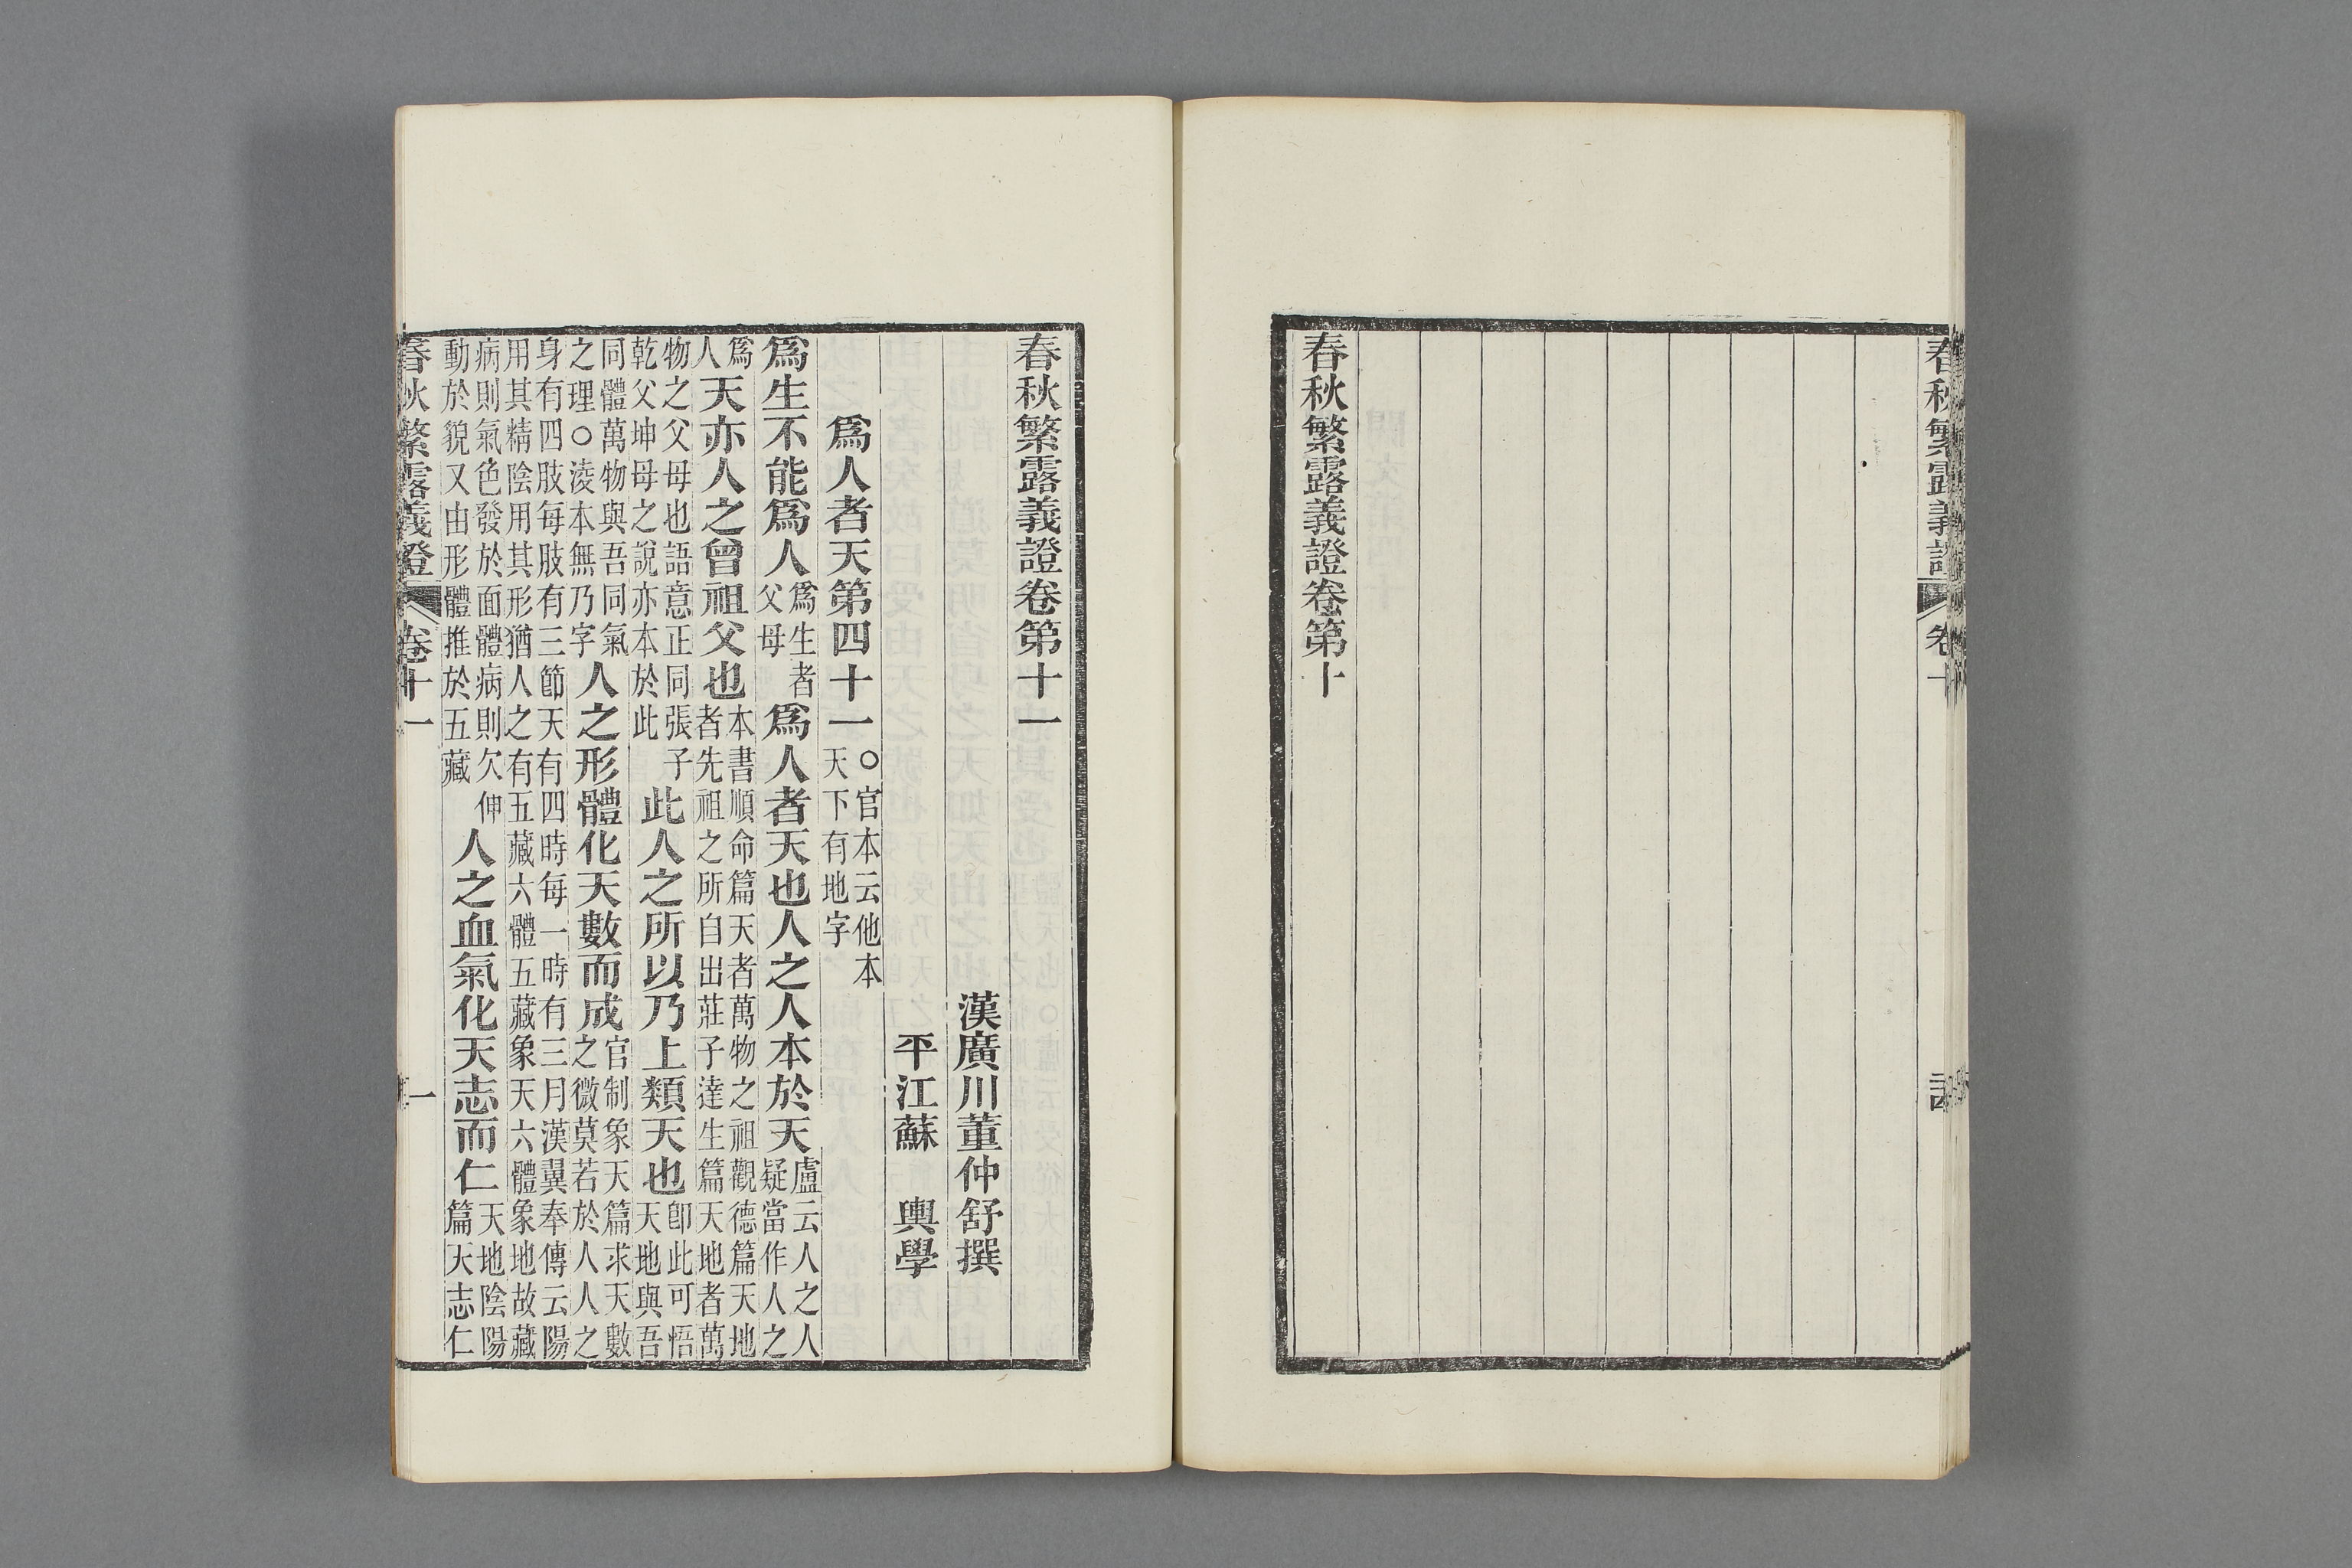 春秋繁露義證
春秋繁露義證卷第十
春秋繁露義證卷第十一
漢廣川董仲舒撰
平江蘇 輿學
爲人者天第四十一 ○官本云他本天下有地字
爲生不能爲人爲生者父母爲人者天也人之人本於天盧云人之人疑當作人之
爲人天亦人之曾祖父也本書順命篇天者萬物之祖觀德篇天地者先祖之所自出莊子達生篇天地者萬
物之父母也語意正同張子乾父坤母之說亦本於此此人之所以乃上類天也卽此可悟天地與吾
同體萬物與吾同氣之理○淩本無乃字人之形體化天數而成官制象天篇求天數之微莫若於人人之
身有四肢每肢有三節天有四時每一時有三月漢翼奉傳云陽用其精陰用其形猶人之有五藏六體五藏象天六體象地故藏
病則氣色發於面體病則欠伸動於貌又由形體推於五藏人之血氣化天志而仁天地陰陽篇天志仁
春秋繁露義證 卷十一 一